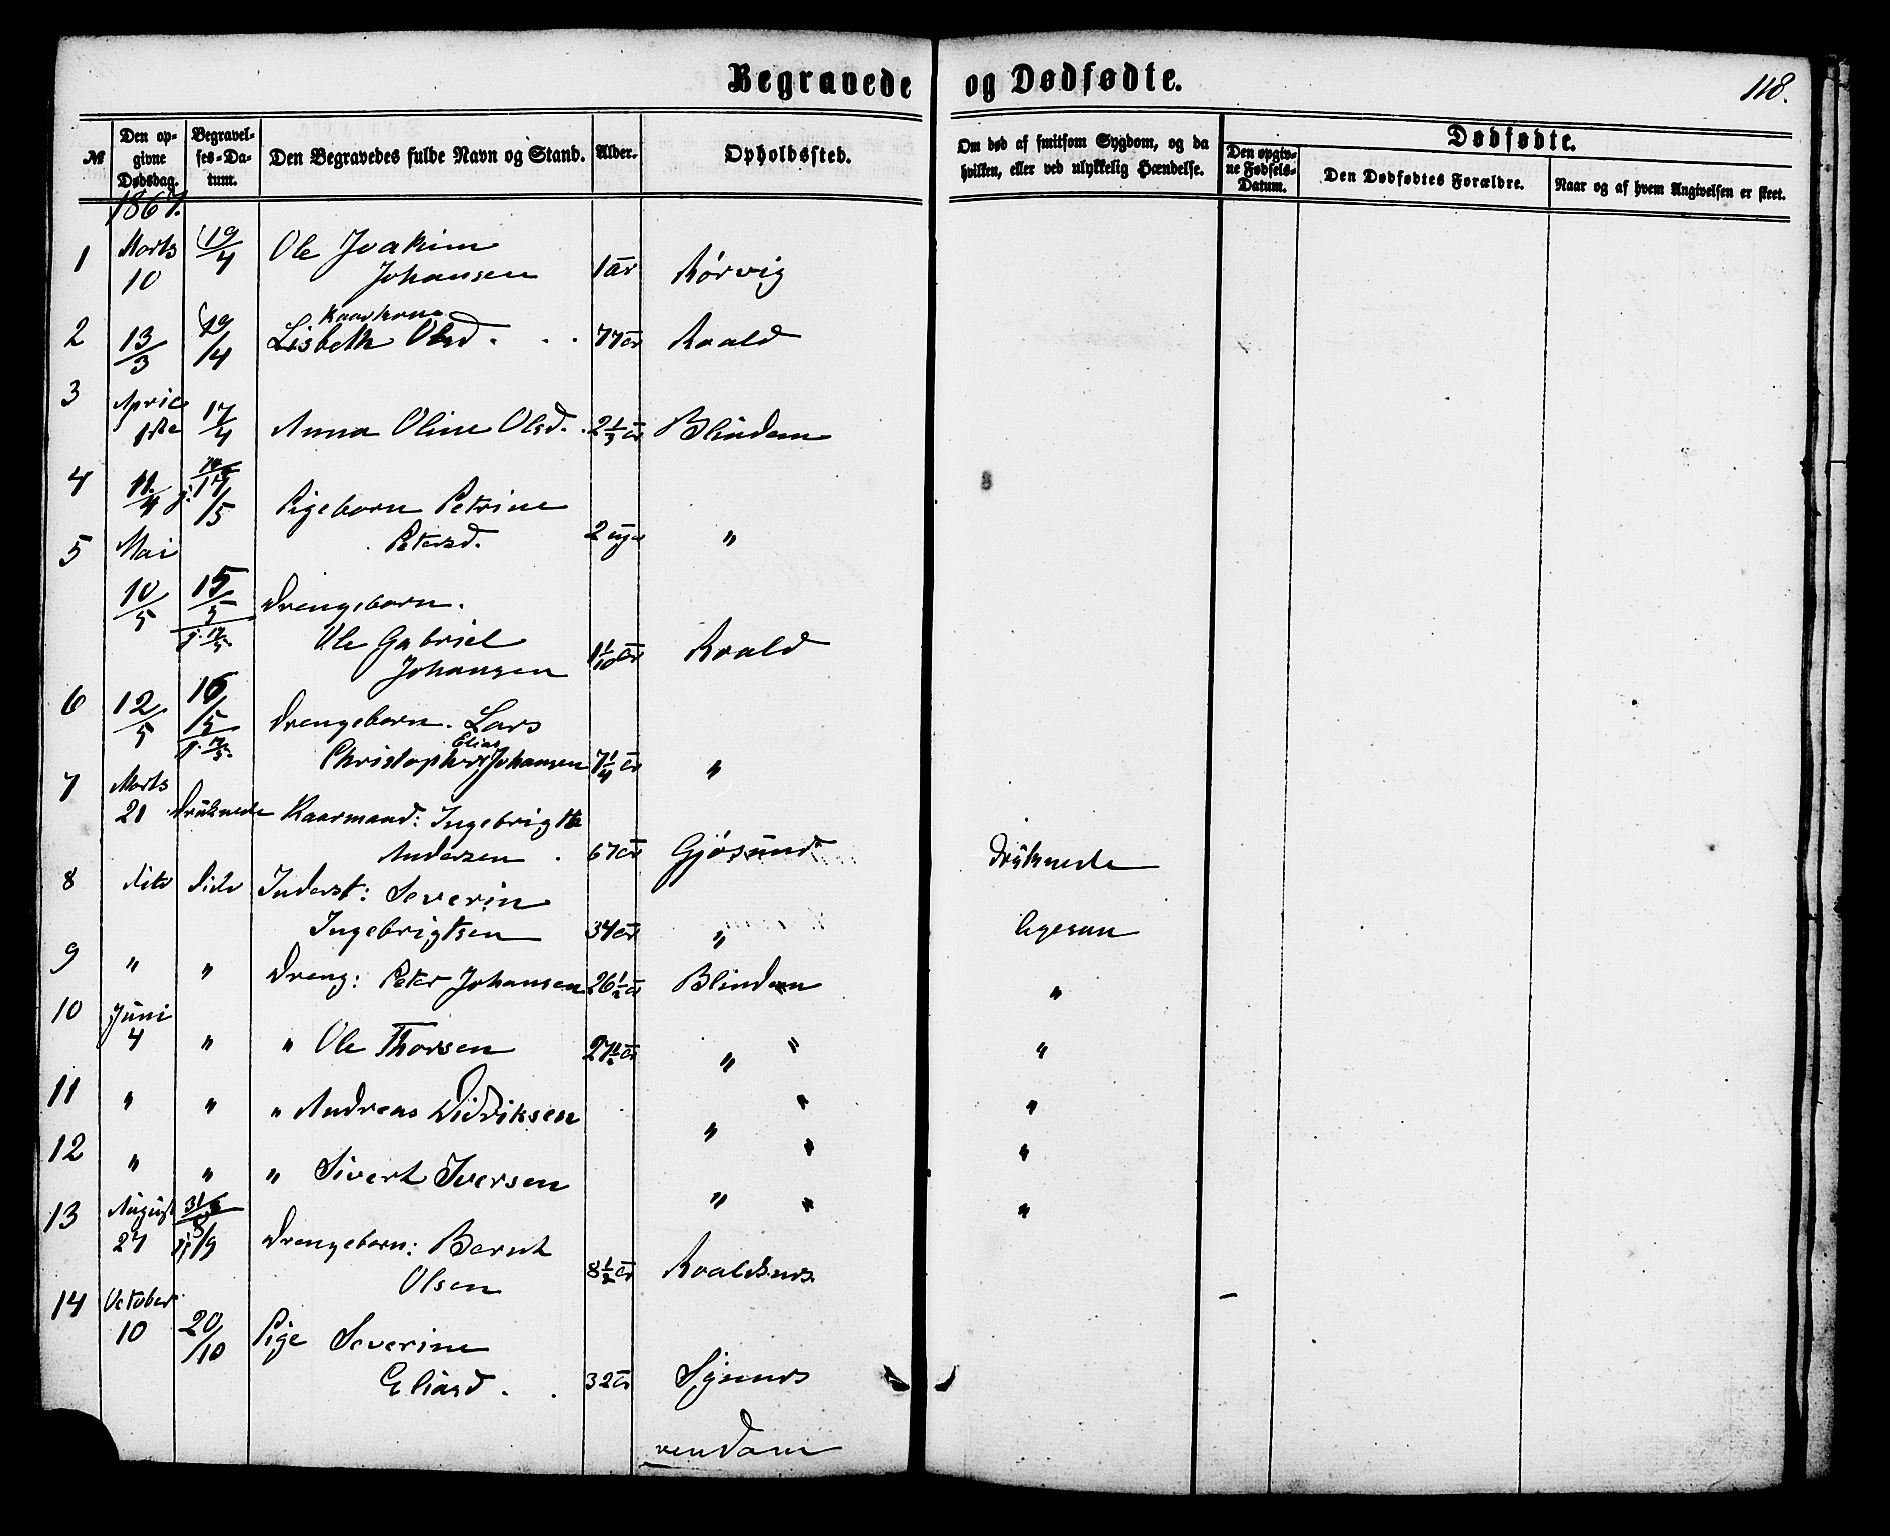 Begravede og Dødfødte.
118.
№
Den opgivne Dødsdag.
Begravelses-Datum.
Den Begravedes fulde Navn og Stand.
Alder.
Opholdssted.
Om død af smitsom Sygdom, og da hvilken, eller ved ulykkelig Hændelse.
Dødfødte.
Den opgivne Fødsels-Datum.
Den Dødfødtes Forældre.
Naar og af hvem Angivelsen er skeet.
1867.
1 Marts 10 19/4 Ole Joakim
Johansen 1 år Rørvig
2 13/3 19/4 Kaarkone
Lisbeth Olsd. 77 år Roald
3 April 1ste 17/4 Anna Oline Olsd. 2 1/3 år Blindem
4 11/4 17/5 Pigebarn Petrine
Petersd. 2 uger "
5 Mai
10/5 15/5 j. 17/5 Drengebarn.
Ole Gabriel
Johansen 1 1/10 år Roald
6 12/5 16/5 j. 17/5 Drengebarn. Lars
Elias
Christopher Johansen 7 1/4 år "
7 Marts 21 Druknede Kaarmand: Ingebrigt
Andersen 67 år Gjøsund Druknede
8 dito dito Inderst: Severin
Ingebrigtsen 34 år " ligesaa
9 " " Dreng: Peter Johansen 26 1/2 år Blindem "
10 Juni 4 " " Ole Thorsen 27 1/2 år " " "
11 " " " Andreas Didriksen " " "
12 " " " Sivert Iversen " " "
13 August 27 31/8 j. 8/9 Drengebarn: Bernt " " "
Olsen 8 1/2 år Roaldsnes
14 October 10 20/10 Pige Severine
Eliasd. 32 år Synnes
vendam